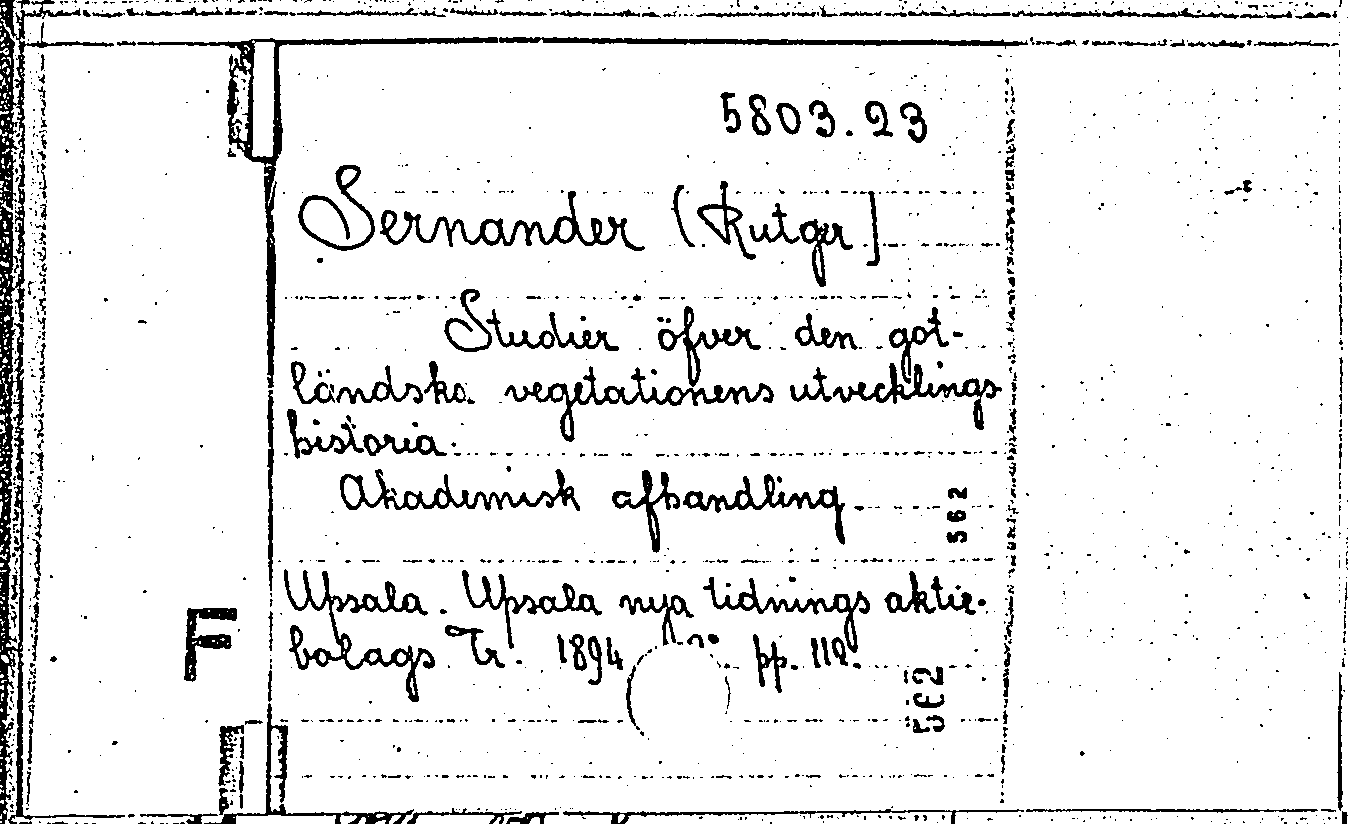 5803.23
Sernander (Rutger]
Studier öfver den got-
ländska vegetationens utvecklings
historia.
Akademisk afhandling.
562
Upsala. Upsala nya tidnings aktie-
bolags Tr. 1894 pp. 112.
562
F